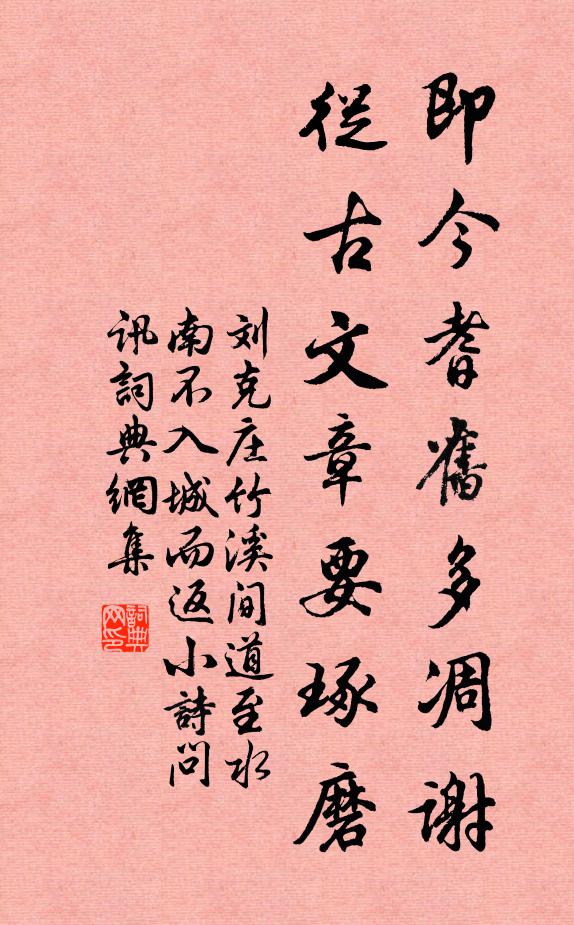 即今耆舊多凋谢
從古文章要琢磨
刘克庄竹溪间道至水
南不入城而返小詩问
讯詞典網集
詞典网印